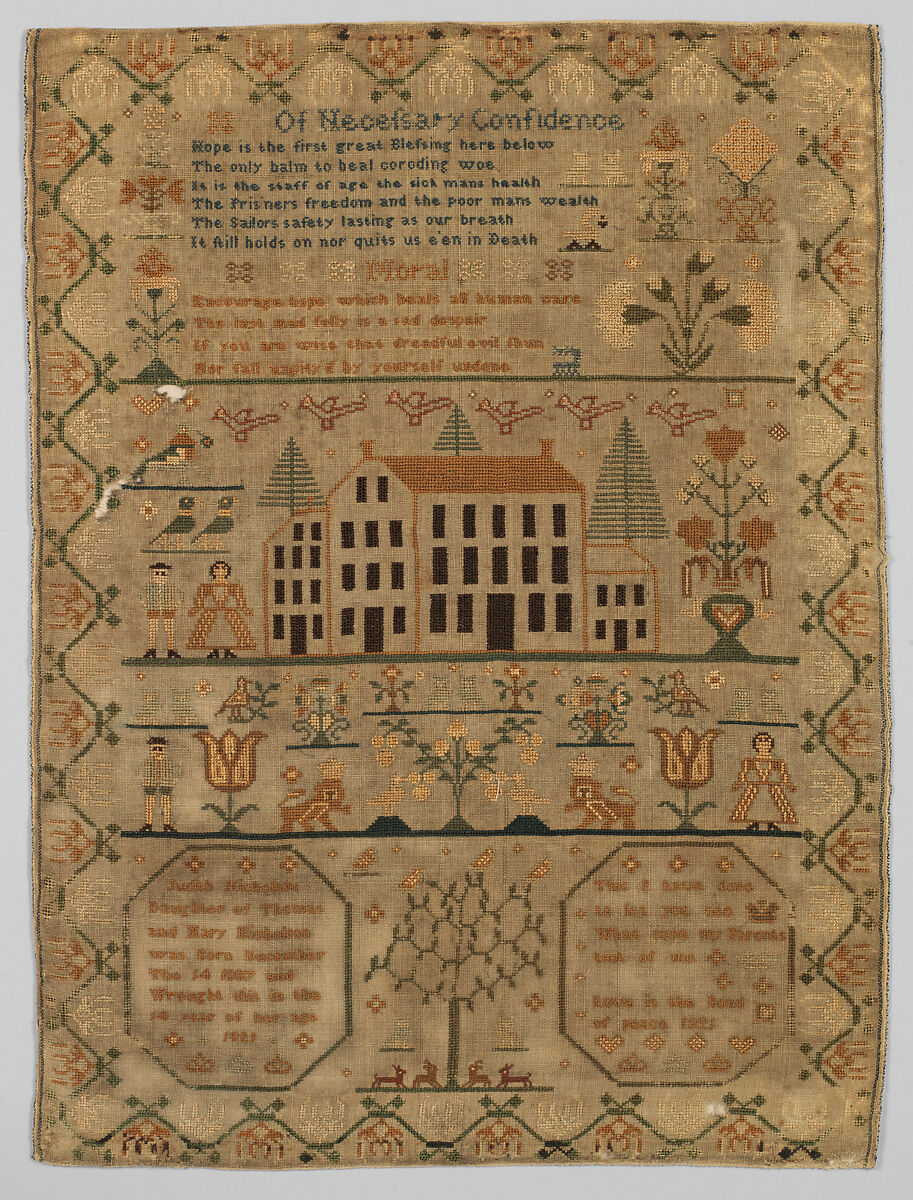 Of Neceſsary Confidence
Hope is the first great Bleſsing here below
The only balm to heal coroding woe
It is the staff of age the sick mans health
The Pris'ners freedom and the poor mans wealth
The Sailors safety lasting as our breath
It ſtill holds on nor quits us e'en in Death
Moral
Encourage hope which heals all human care
The last mad folly is a sad despair
If you are wise that dreadful evil ſhun
Nor fall unpity'd by yourself undone
Judith Nicholson
Daughter of Thomas
and Mary Nicholson
was Born December
The 14 1807 and
Wrought this in the
14 year of her age
1821
This I have done
to let you see
What care my Parents
took of me
Love is the Bond
of peace 1821